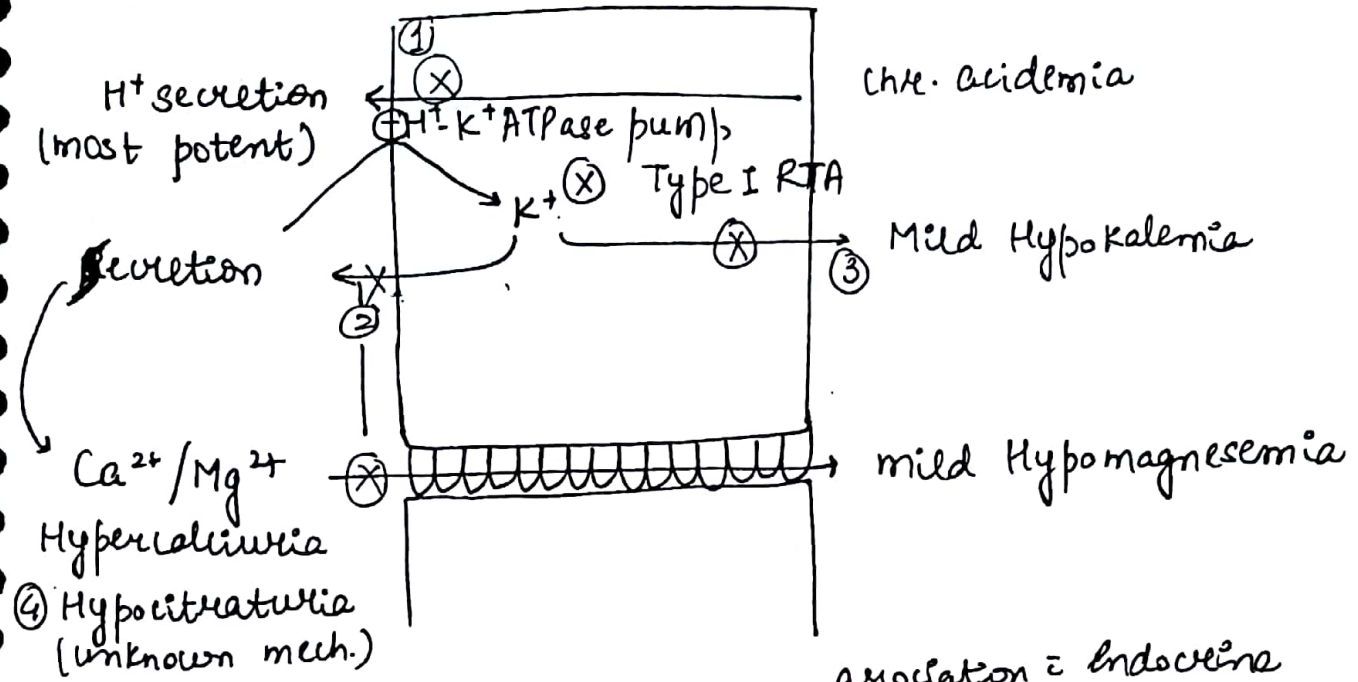 ①
Ⓧ
H⁺ secretion
(most potent)
Chr. acidemia
⊕ H⁺-K⁺ ATPase pump
Ⓧ Type I RTA
K⁺
Ⓧ
Mild Hypokalemia
③
Secretion
X
②
Ca²⁺/Mg²⁺
Ⓧ
mild Hypomagnesemia
Hypercalciuria
④ Hypocitraturia
(unknown mech.)
association c̄ Endocrine